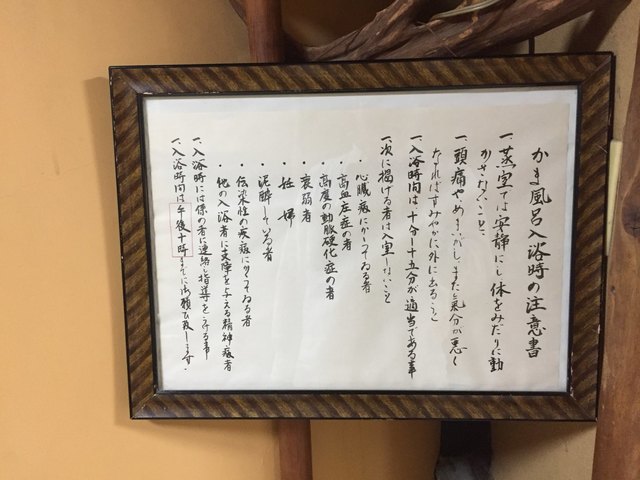 かま風呂入浴時の注意書
一、蒸室では安静にし体をみだりに動
かさないこと
一、頭痛やめまいがし、また気分が悪く
なればすみやかに外に出ること
一、入浴時間は十分〜十五分が適当である事
一、次に掲げる者は入室しないこと
・心臓病にかかってゐる者
・高血圧症の者
・高度の動脈硬化症の者
・衰弱者
・妊婦
・泥酔している者
・伝染性の疾病にかかってゐる者
・他の入浴者に支障を与える精神病者
一、入浴時には係の者に連絡し指導をうける事
一、入浴時間は午後十時までにお願い致します。